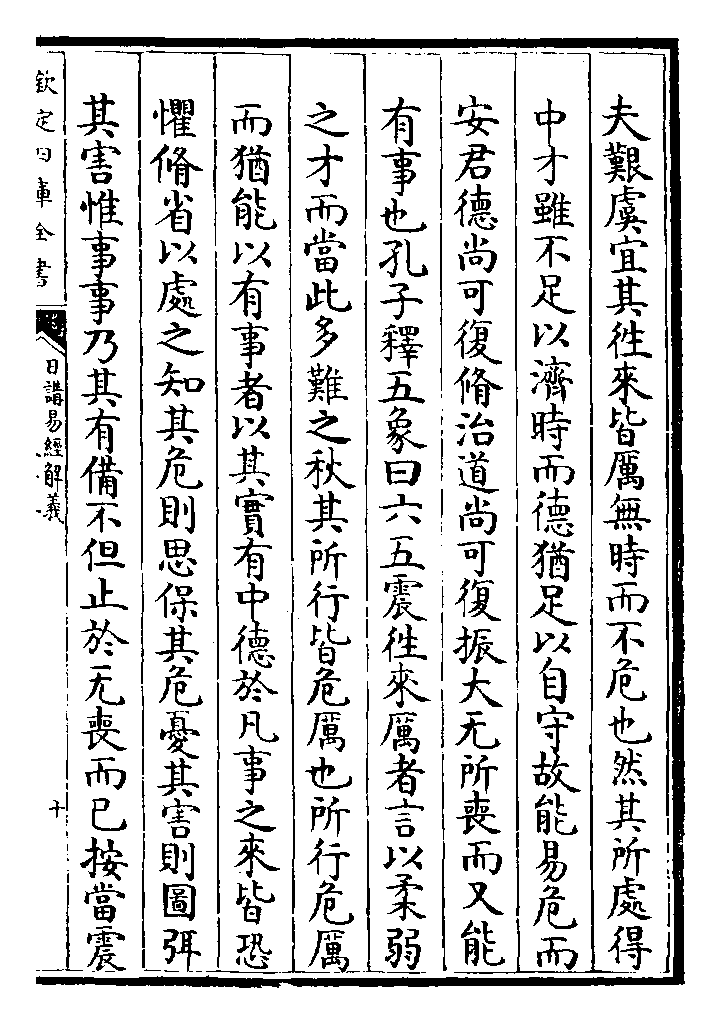 夫艱虞宜其徃來皆厲無時而不危也然其所處得
中才雖不足以濟時而德猶足以自守故能易危而
安君德尚可復脩治道尚可復振大无所喪而又能
有事也孔子釋五象曰六五震徃來厲者言以柔弱
之才而當此多難之秋其所行皆危厲也所行危厲
而猶能以有事者以其實有中德於凡事之來皆恐
懼脩省以處之知其危則思保其危憂其害則圖弭
其害惟事事乃其有備不但止於无喪而已按當震
欽定四庫全書
日講易經解義
十